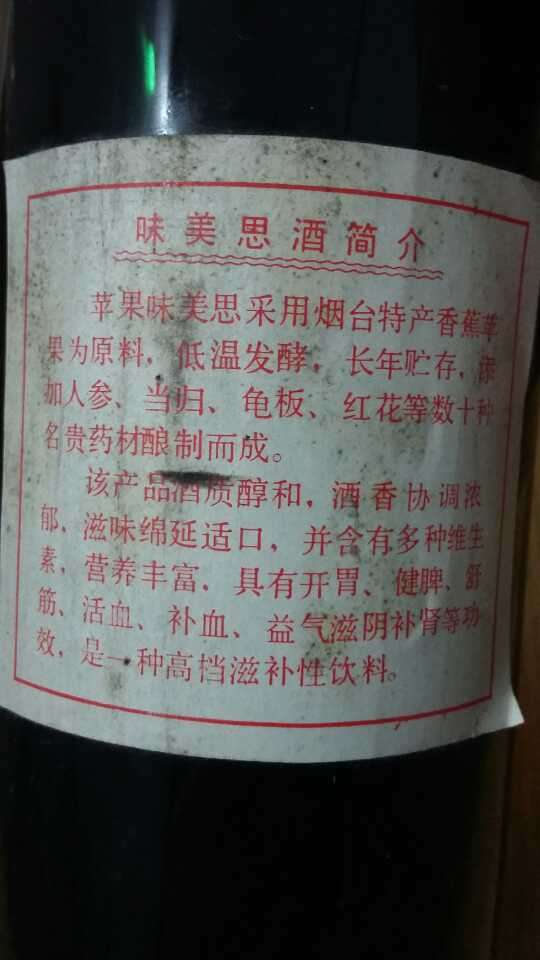 味美思酒简介
苹果味美思采用烟台特产香蕉苹
果为原料，低温发酵，长年贮存，添
加人参、当归、龟板、红花等数十种
名贵药材酿制而成。
该产品酒质醇和，酒香协调浓
郁，滋味绵延适口，并含有多种维生
素，营养丰富，具有开胃、健脾、舒
筋、活血、补血、益气滋阴补肾等功
效，是一种高档滋补性饮料。